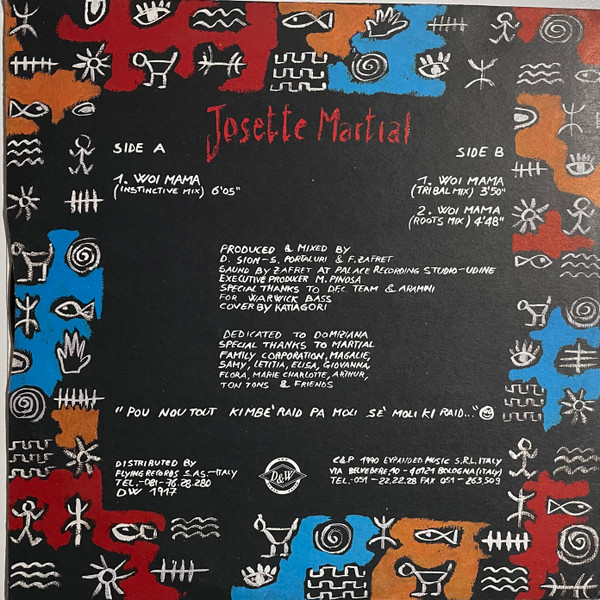 Josette Martial
SIDE A
1. WOI MAMA
(INSTINCTIVE MIX) 6'05"
SIDE B
1. WOI MAMA
(TRIBAL MIX) 3'50"
2. WOI MAMA
(ROOTS MIX) 4'48"
PRODUCED & MIXED BY
D. SION-S. PORTALURI & F. ZAFRET
SAUND BY ZAFRET AT PALACE RECORDING STUDIO-UDINE
EXECUTIVE PRODUCER M. PINOSA
SPECIAL THANKS TO DFC. TEAM & ARAMNI
FOR WARWICK BASS
COVER BY KATIAGORI
DEDICATED TO DOMIZIANA
SPECIAL THANKS TO MARTIAL
FAMILY CORPORATION, MAGALIE,
SAMY, LETITIA, ELISA, GIOVANNA,
FLORA, MARIE CHARLOTTE, ARTHUR,
TON TONS & FRIENDS
"POU NOU TOUT KIMBE' RAID PA MOLI SE' MOLI KI RAID..."
DISTRIBUTED BY
FLYING RECORDS S.A.S.-ITALY
TEL.-081-76.28.280
DW 1917
D&W
C&P 1990 EXPANDED MUSIC S.R.L. ITALY
VIA BELVEDERE, 10 - 40121 BOLOGNA (ITALY)
TEL. 051 - 22.22.28 FAX 051 - 263509